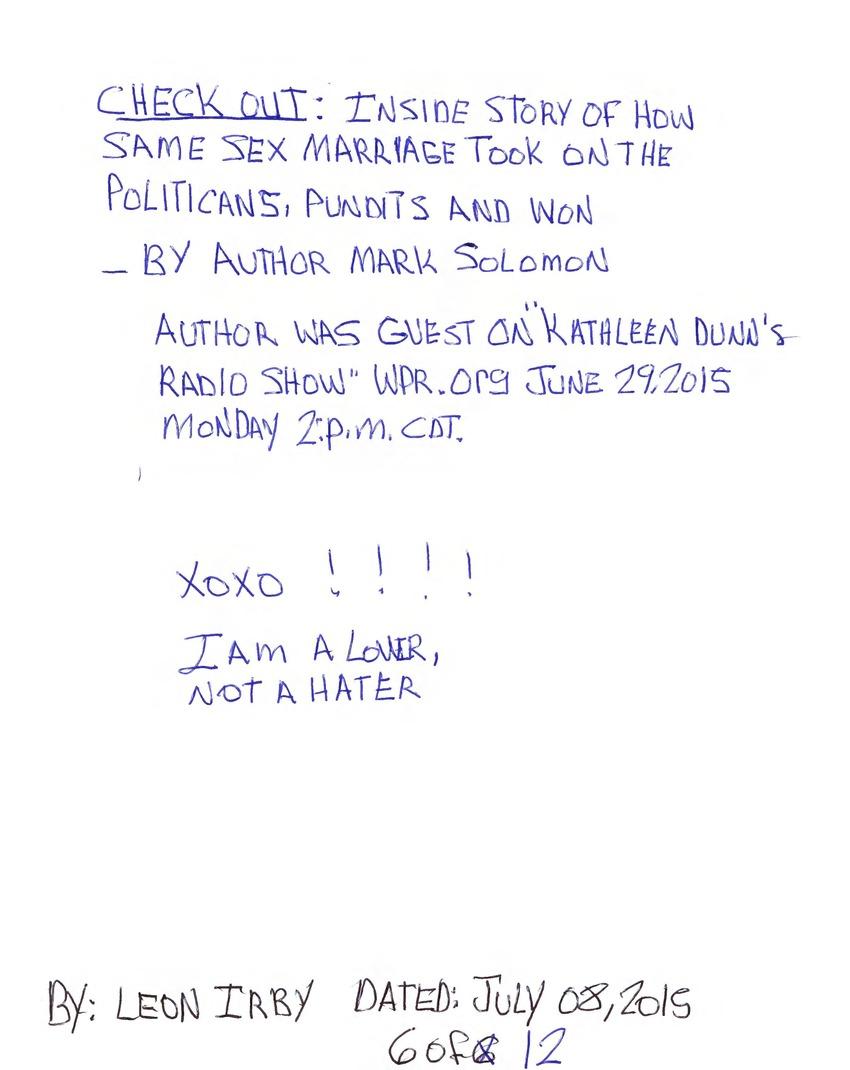 CHECK OUT: INSIDE STORY OF HOW
SAME SEX MARRIAGE TOOK ON THE
POLITICANS, PUNDITS AND WON
— BY AUTHOR MARK SOLOMON
AUTHOR WAS GUEST ON "KATHLEEN DUNN'S
RADIO SHOW" WPR.Org JUNE 29,2015
MONDAY 2:p.m. CDT.
XOXO ! ! ! !
I AM A LOVER,
NOT A HATER
BY: LEON IRBY DATED: JULY 08,2015
6 of 12